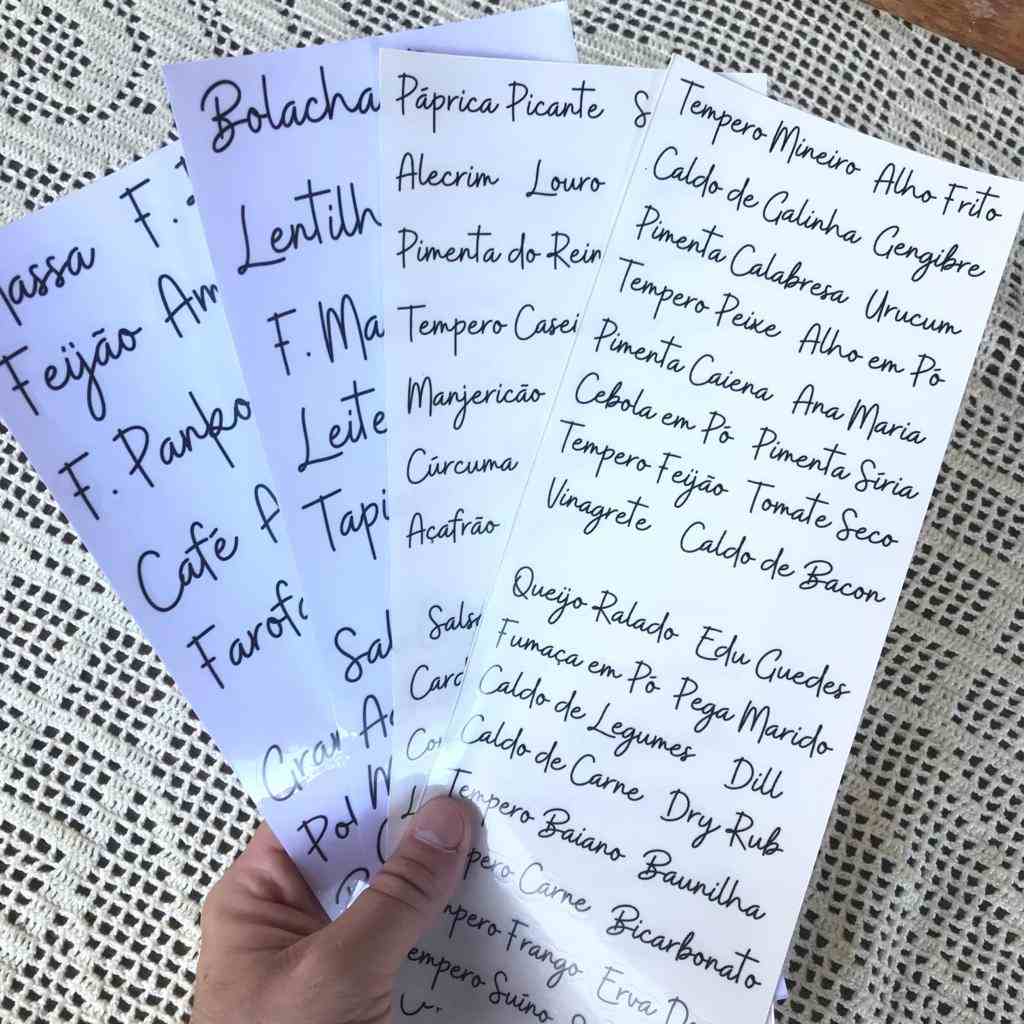 Feijão
F. Panko
Café
Bolacha
F. Ma
Leite
Páprica Picante S
Alecrim Louro
Pimenta do Rein
Tempero Casei
Manjericão
Cúrcuma
Açafrão
Tempero Mineiro Alho Frito
Caldo de Galinha Gengibre
Pimenta Calabresa Urucum
Tempero Peixe Alho em Pó
Pimenta Caiena Ana Maria
Cebola em Pó Pimenta Síria
Tempero Feijão Tomate Seco
Vinagrete Caldo de Bacon
Queijo Ralado Edu Guedes
Fumaça em Pó Pega Marido
Caldo de Legumes Dill
Caldo de Carne Dry Rub
Tempero Baiano Baunilha
pero Carne Bicarbonato
mpero Frango Erva
empero Suíno